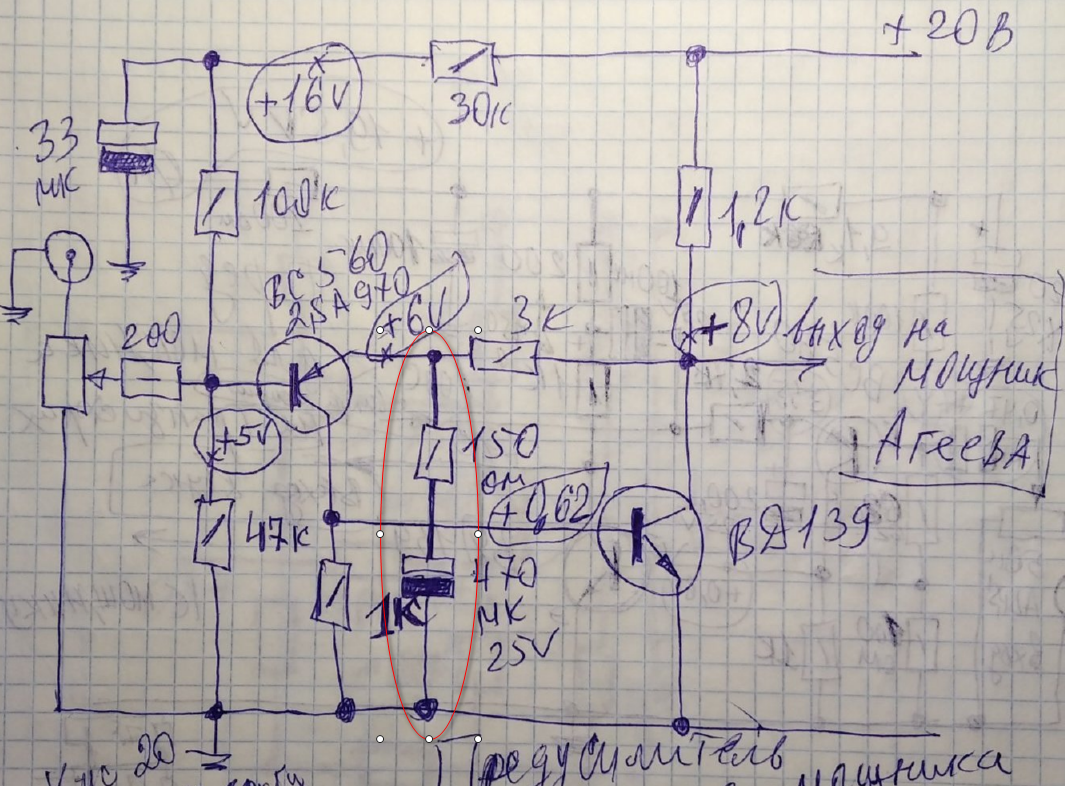 + 20 В
+16 V
30к
33
мк
100к
1,2к
ВС 560
2SA 970
+6V
3к
+8V
выход на
мощник
Агеева
200
+5V
150
ом
+0,62
ВD139
47к
1к
470
мк
25V
20
Предусилитель
мощника